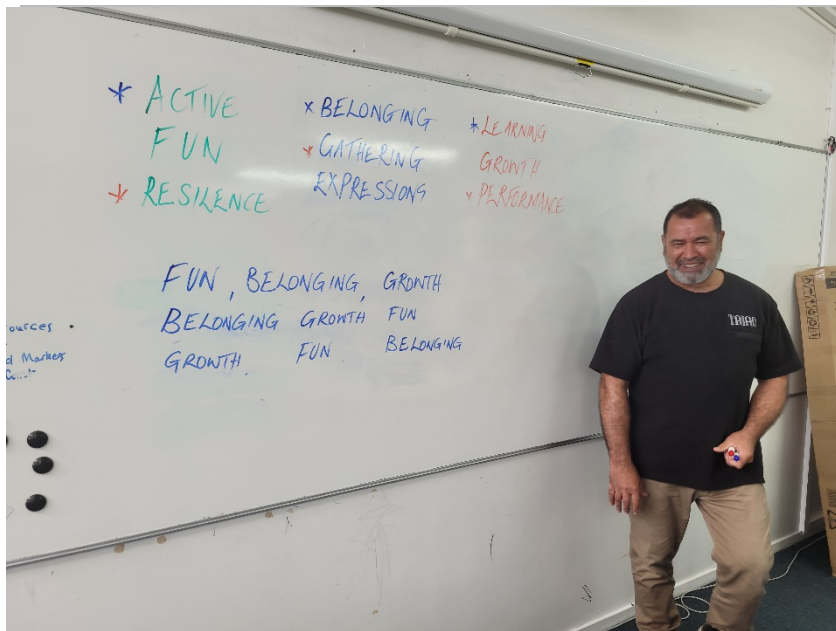 * ACTIVE
FUN
* RESILENCE
* BELONGING
* GATHERING
EXPRESSIONS
* LEARNING
GROWTH
* PERFORMANCE
FUN, BELONGING, GROWTH
BELONGING GROWTH FUN
GROWTH FUN BELONGING
ources
d Market